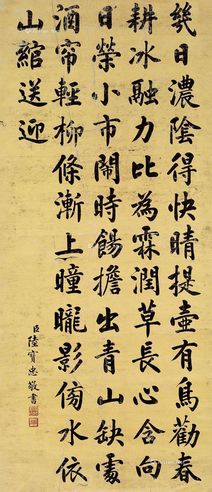 幾日濃陰得快晴提壺有鳥勸春
耕冰融力比為霖潤草長心含向
日榮小市鬧時餳擔出青山缺處
酒帘輕柳條漸上曈曨影傍水依
山綰送迎
臣陸寶忠敬書